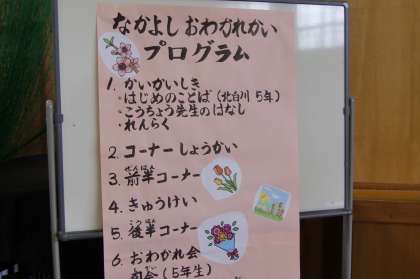 なかよし おわかれかい
プログラム
1. かいかいしき
・はじめのことば(北白川 5年)
・こうちょう先生のはなし
・れんらく
2. コーナーしょうかい
3. 前半コーナー
4. きゅうけい
5. 後半コーナー
6. おわかれ会
(5年生)